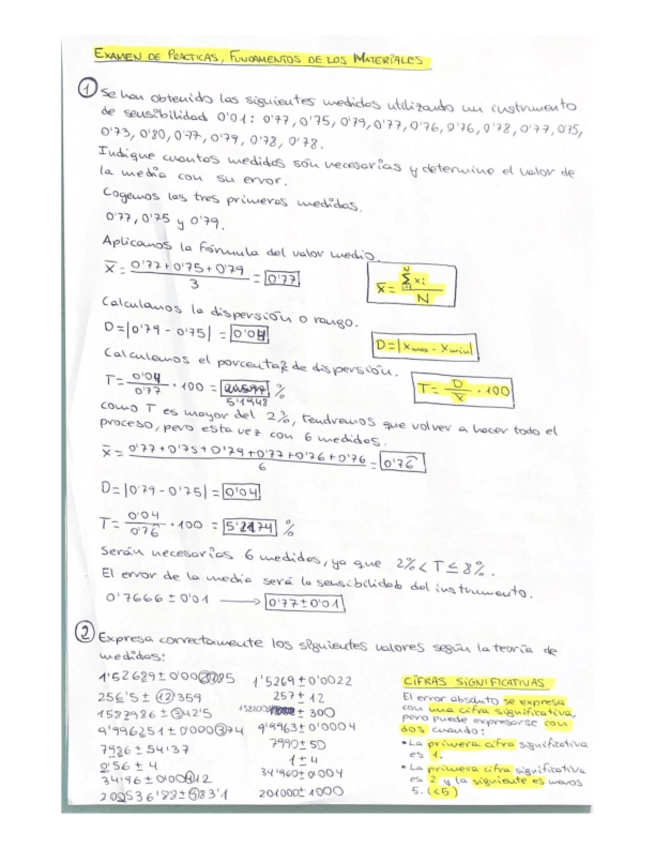 EXAMEN DE PRÁCTICAS, FUNDAMENTOS DE LOS MATERIALES
1 Se han obtenido las siguientes medidas utilizando un instrumento
de sensibilidad 0'01: 0'77, 0'75, 0'79, 0'77, 0'76, 0'76, 0'78, 0'77, 0'75,
0'73, 0'80, 0'77, 0'79, 0'78, 0'78.
Indique cuantas medidas son necesarias y determine el valor de
la media con su error.
Cogemos las tres primeras medidas.
0'77, 0'75 y 0'79.
Aplicamos la fórmula del valor medio.
x̄ = (0'77 + 0'75 + 0'79) / 3 = 0'77
x̄ = Σ xi / N
Calculamos la dispersión o rango.
D = |0'79 - 0'75| = 0'04
D = |xmax - xmin|
Calculamos el porcentaje de dispersión.
T = 0'04 / 0'77 · 100 = 5'1948 %
T = D / x̄ · 100
como T es mayor del 2%, tendremos que volver a hacer todo el
proceso, pero esta vez con 6 medidas.
x̄ = (0'77 + 0'75 + 0'79 + 0'77 + 0'76 + 0'76) / 6 = 0'76
D = |0'79 - 0'75| = 0'04
T = 0'04 / 0'76 · 100 = %
Serán necesarias 6 medidas, ya que 2% < T ≤ 8%.
El error de la media será la sensibilidad del instrumento.
0'7666 ± 0'01 → 0'77 ± 0'01
2 Expresa correctamente los siguientes valores según la teoría de
medidas:
1'52689 ± 1'5269 ± 0'0022
256'5 ± 12'359 257 ± 12
1582986 ± 342'5 ± 300
9'996251 ± 0'000374 9'9963 ± 0'0004
7986 ± 54'37 7990 ± 50
0'56 ± 4 1 ± 4
34'96 ± 34'960 ± 0'004
± 201000 ± 1000
CIFRAS SIGNIFICATIVAS
El error absoluto se expresa
con una cifra significativa,
pero puede expresarse con
dos cuando:
• La primera cifra significativa
es 1.
• La primera cifra significativa
es 2 y la siguiente es menos
5. (<5)